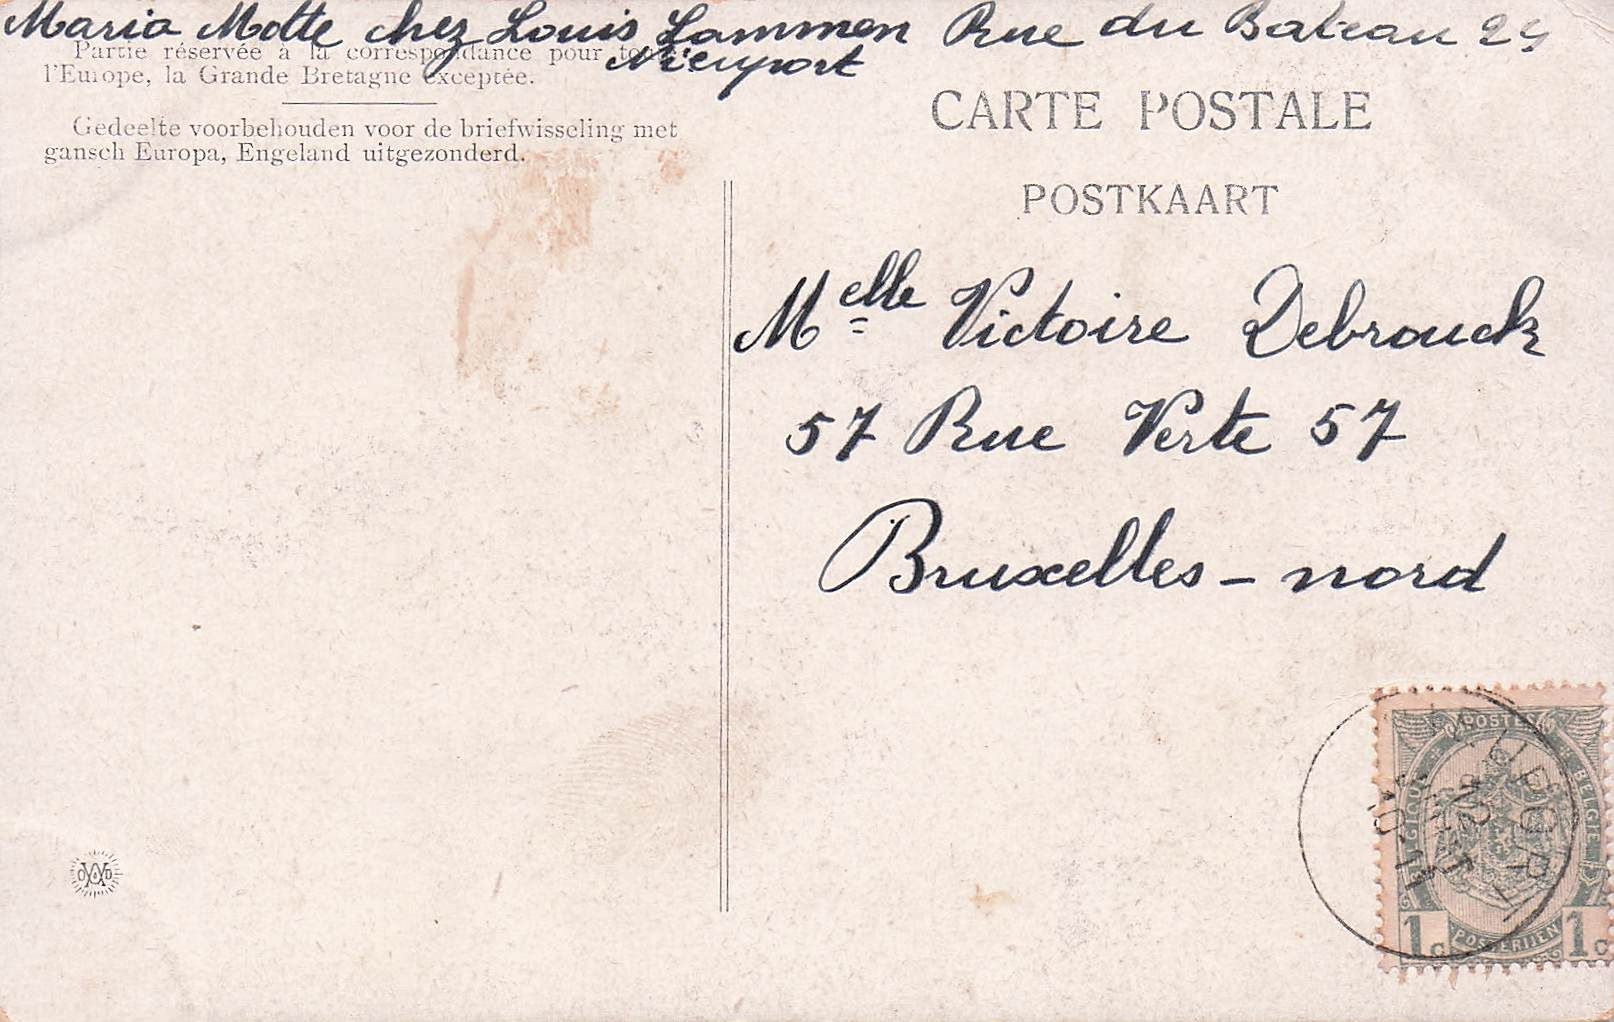 Maria Motte chez Louis Lammen Rue du Bateau
Nieuport
Partie réservée à la correspondance pour
l'Europe, la Grande Bretagne exceptée.
Gedeelte voorbehouden voor de briefwisseling met
gansch Europa, Engeland uitgezonderd.
CARTE POSTALE
POSTKAART
Melle Victoire Debrouck
57 Rue Verte 57
Bruxelles - nord
POSTES
BELGIQUE
BELGIE
POSTERIJEN
1c 1c